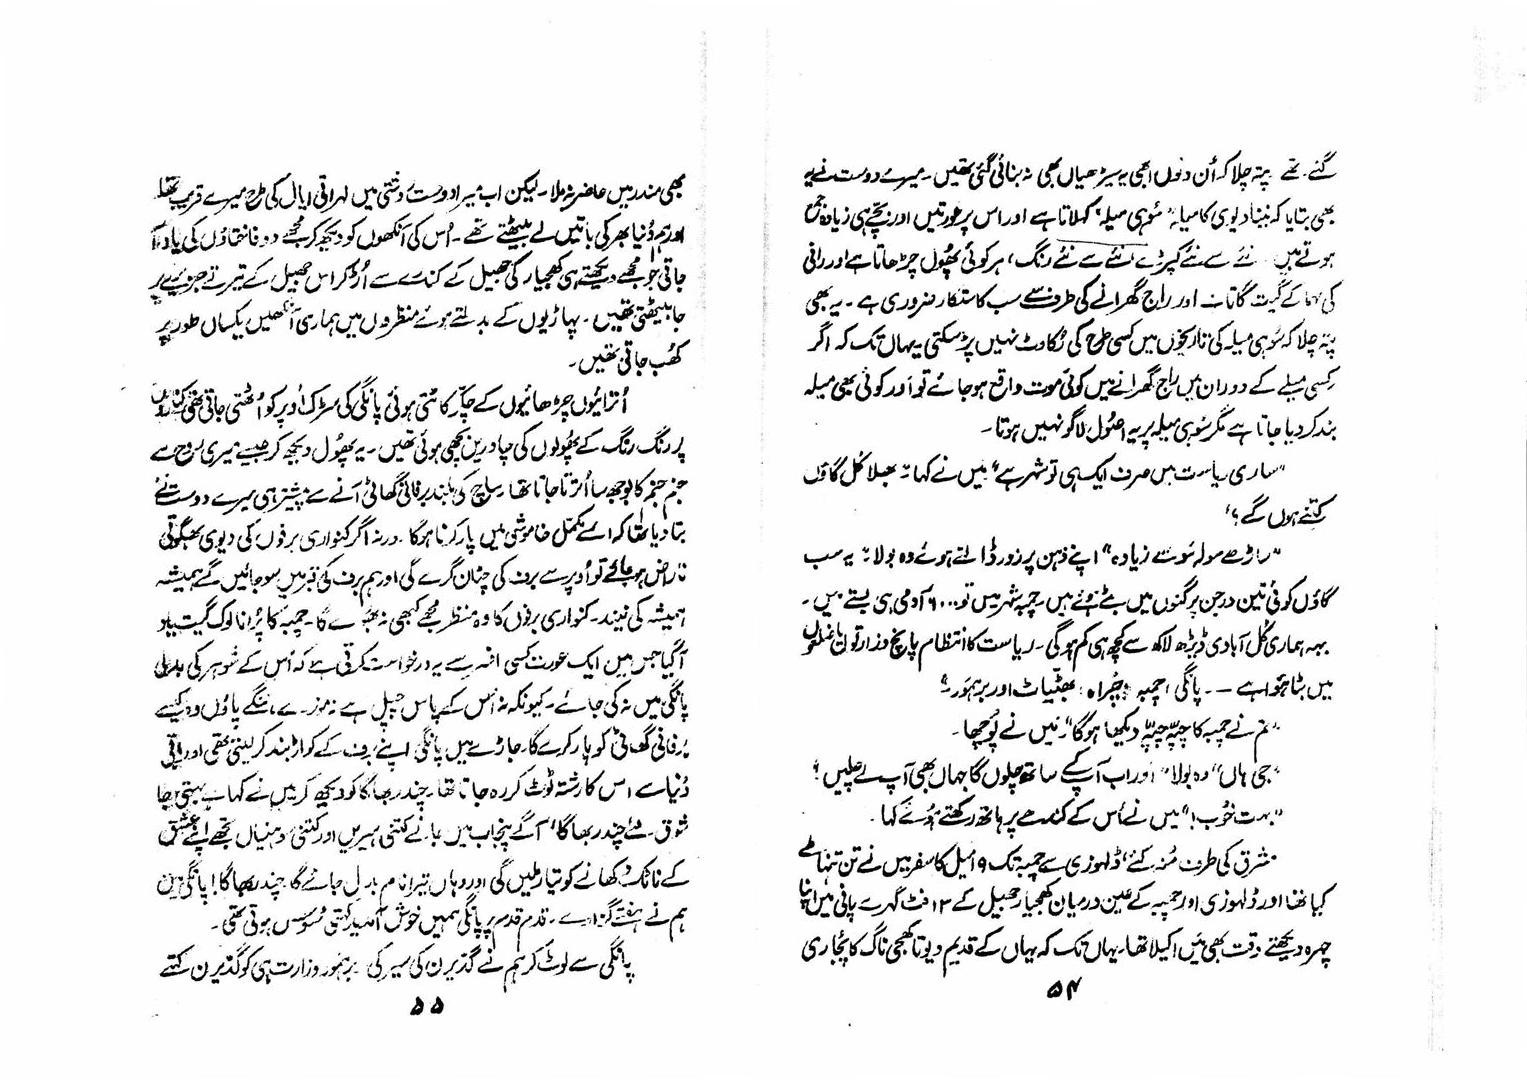 گئے تھے پتہ چلا کہ اُن دنوں ابھی یہ سیڑھیاں بھی نہ بنائی گئی تھیں۔ میرے دوست نے یہ
بھی بتایا کہ نینا دیوی کا میلہ "سُوہی میلہ" کہلاتا ہے اور اس پر عورتیں اور بچے ہی زیادہ جمع
ہوتے ہیں۔ نئے سے نئے کپڑے، نئے سے نئے رنگ، ہر کوئی پھول چڑھاتا ہے اور رانی
کی مہما کے گیت گاتا ہے اور راج گھرانے کی طرف سے سب کا ستکار ضروری ہے۔ یہ بھی
پتہ چلا کہ سُوہی میلہ کی تاریخوں میں کسی طرح کی رُکاوٹ نہیں پڑ سکتی یہاں تک کہ اگر
کسی میلے کے دوران میں راج گھرانے میں کوئی موت واقع ہو جائے تو اور کوئی بھی میلہ
بند کر دیا جاتا ہے مگر سُوہی میلہ پر یہ اصُول لاگو نہیں ہوتا۔
"ساری ریاست میں صرف ایک ہی تو شہر ہے" میں نے کہا "بھلا کُل گاؤں
کتنے ہوں گے؟"
"ساڑھے سولہ سَو سے زیادہ" اپنے ذہن پر زور ڈالتے ہوئے وہ بولا "یہ سب
گاؤں کوئی تین درجن پرگنوں میں بٹے ہوئے ہیں۔ چمبہ شہر میں تو ۶۰۰۰ آدمی ہی بستے ہیں۔
ہماری کُل آبادی ڈیڑھ لاکھ سے کچھ ہی کم ہوگی۔ ریاست کا انتظام پانچ وزارتوں
میں بٹا ہوا ہے — پانگی، چمبہ، چُراہ، بھٹیات اور برہمَور۔"
"تم نے چمبہ کا چپّہ چپّہ دیکھا ہوگا" میں نے پُوچھا۔
"جی ہاں" وہ بولا "اور اب آپ کے ساتھ چلوں گا جہاں بھی آپ لے چلیں؟"
"بہت خُوب!" میں نے اُس کے کندھے پر ہاتھ رکھتے ہوئے کہا۔
مشرق کی طرف مُنہ کئے، ڈلہوزی سے چمبہ تک ۱۹ میل کا سفر میں نے تن تنہا طے
کیا تھا اور ڈلہوزی اور چمبہ کے عین درمیان کھجیار جھیل کے ۱۳ فٹ گہرے پانی میں اپنا
چہرہ دیکھتے وقت بھی میں اکیلا تھا۔ یہاں تک کہ یہاں کے قدیم دیوتا کھجی ناگ کا پُجاری
۵۴
بھی مندر میں حاضر نہ ملا۔ لیکن اب میرا دوست وحشی میں لہراتی ایال کی طرح میرے قریب تھا
اور ہم دُنیا بھر کی باتیں لے بیٹھتے تھے۔ اُس کی آنکھوں کو دیکھ کر مجھے دو فاختاؤں کی یاد آ
جاتی جو مجھے دیکھتے ہی کھجیار کی جھیل کے کنارے سے اُڑ کر اس جھیل کے تیرتے جزیرے پر
جا بیٹھتی تھیں۔ پہاڑیوں کے بدلتے ہوئے منظروں میں ہماری آنکھیں یکساں طور پر
کھُب جاتی تھیں۔
اُترائیوں چڑھائیوں کے چکّر کاٹتی ہوئی پانگی کی سڑک اُوپر کو اُٹھتی جاتی تھی
پر رنگ رنگ کے پھولوں کی چادریں بچھی ہوئی تھیں۔ یہ پھول دیکھ کر جیسے میری رُوح سے
جنم جنم کا بوجھ سا اُترتا جاتا تھا۔ ساچ کی بلند برفانی گھاٹی آنے سے پیشتر ہی میرے دوست نے
بتا دیا تھا کہ اسے مکمل خاموشی میں پار کرنا ہوگا۔ ورنہ اگر کنواری برفوں کی دیوی بھگوتی
ناراض ہو جائے تو اُوپر سے برف کی چٹان گرے گی اور ہم برف کی تہہ میں سو جائیں گے ہمیشہ
ہمیشہ کی نیند۔ کنواری برفوں کا وہ منظر مجھے کبھی نہ بھولے گا۔ چمبہ کا پُرانا لوک گیت یاد
آگیا جس میں ایک عورت کسی افسر سے یہ درخواست کرتی ہے کہ اُس کے شوہر کی بدلی
پانگی میں نہ کی جائے۔ کیونکہ نہ اُس کے پاس چپل ہے نہ موزے، ننگے پاؤں وہ کیسے
برفانی گھاٹی کو پار کرے گا۔ جاڑے میں پانگی اپنے برف کے کواڑ بند کر لیتی تھی اور باقی
دُنیا سے اس کا رشتہ ٹوٹ کر رہ جاتا تھا۔ چندر بھاگا کو دیکھ کر میں نے کہا بہتی جا
شوق سے چندر بھاگا! آگے پنجاب میں جانے کتنی ہیریں اور کتنی سوہنیاں تجھے اپنے عشق
کے ناٹک دکھانے کو تیار ملیں گی اور وہاں تیرا نام بدل جائے گا، چندر بھاگا! پانگی میں
ہم نے ہفتے گزارے۔ قدم قدم پر پانگی ہمیں خوش آمدید کہتی محسوس ہوتی تھی۔
پانگی سے لوٹ کر ہم نے گدیرن کی سیر کی۔ برہمور وزارت ہی کو گدیرن کہتے
۵۵